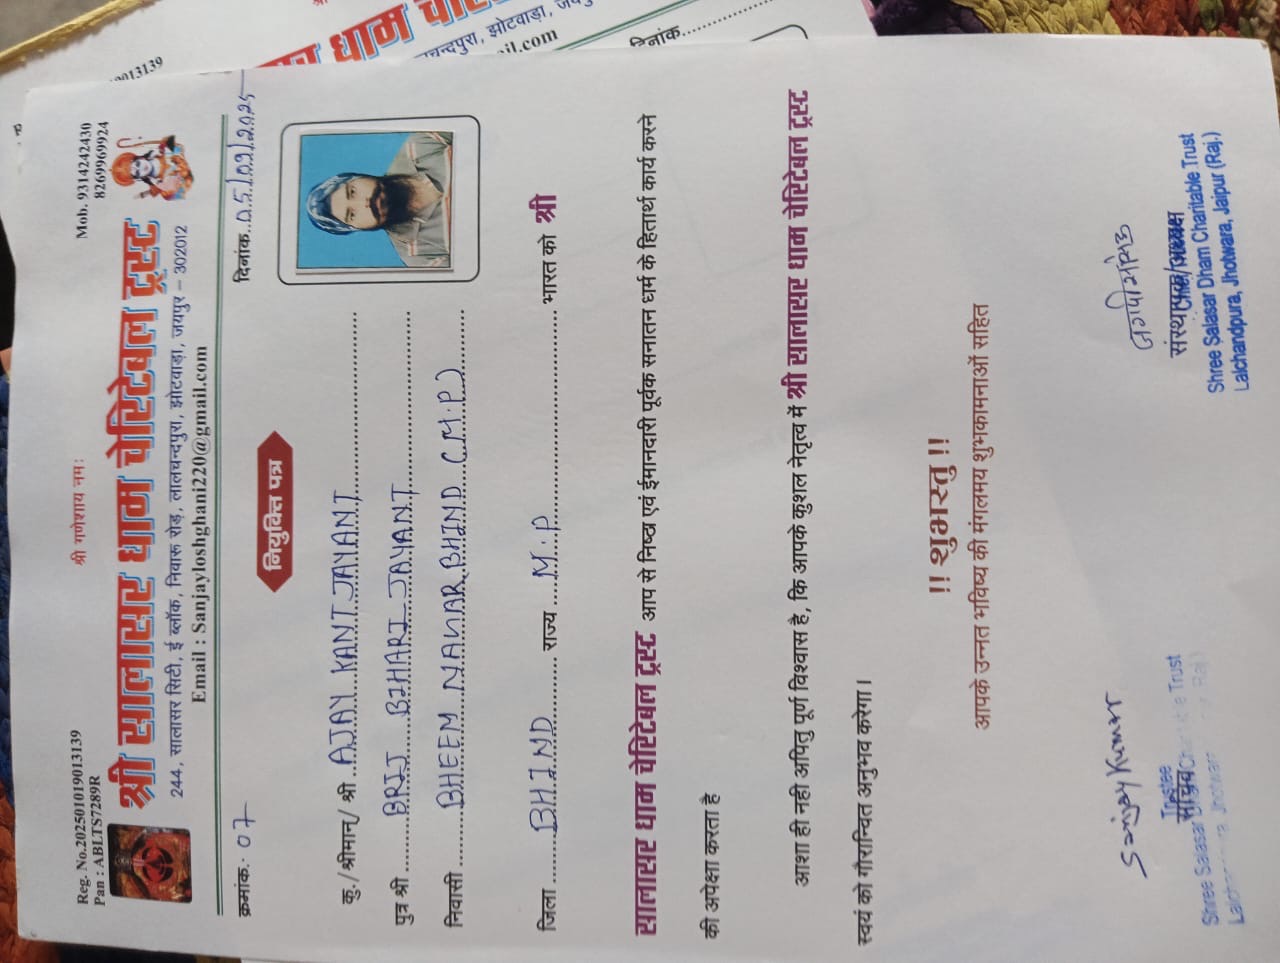 श्री गणेशाय नमः
Reg. No.202501019013139
Pan : ABLTS7289R
Mob. 9314242430
8269969924
श्री सालासर धाम चेरिटेबल ट्रस्ट
244, सालासर सिटी, ई ब्लॉक, निवारू रोड़, लालचन्दपुरा, झोटवाड़ा, जयपुर – 302012
Email : Sanjayloshghani220@gmail.com
क्रमांक. 07
दिनांक..05/09/2025
नियुक्ति पत्र
कु./श्रीमान्/ श्री ..AJAY KANT JAYANT
पुत्र श्री ........BRIJ BIHARI JAYANT
निवासी ........BHEEM NAGAR BHIND (M.P)
जिला ........BHIND........ राज्य ....M.P........ भारत को श्री
सालासर धाम चेरिटेबल ट्रस्ट आप से निष्ठा एवं ईमानदारी पूर्वक सनातन धर्म के हितार्थ कार्य करने
की अपेक्षा करता है
आशा ही नही अपितु पूर्ण विश्वास है, कि आपके कुशल नेतृत्व में श्री सालासर धाम चेरिटेबल ट्रस्ट
स्वयं को गौरान्वित अनुभव करेगा।
!! शुभस्तु !!
आपके उन्नत भविष्य की मंगलमय शुभकामनाओं सहित
Sanjay Kumar
Trustee
सचिव
Shree Salasar Dham Charitable Trust
संस्थापक/अध्यक्ष
Shree Salasar Dham Charitable Trust
Lalchandpura, Jhotwara, Jaipur (Raj.)
धाम
झोटवाड़ा,
il.com
दिनांक
9013139